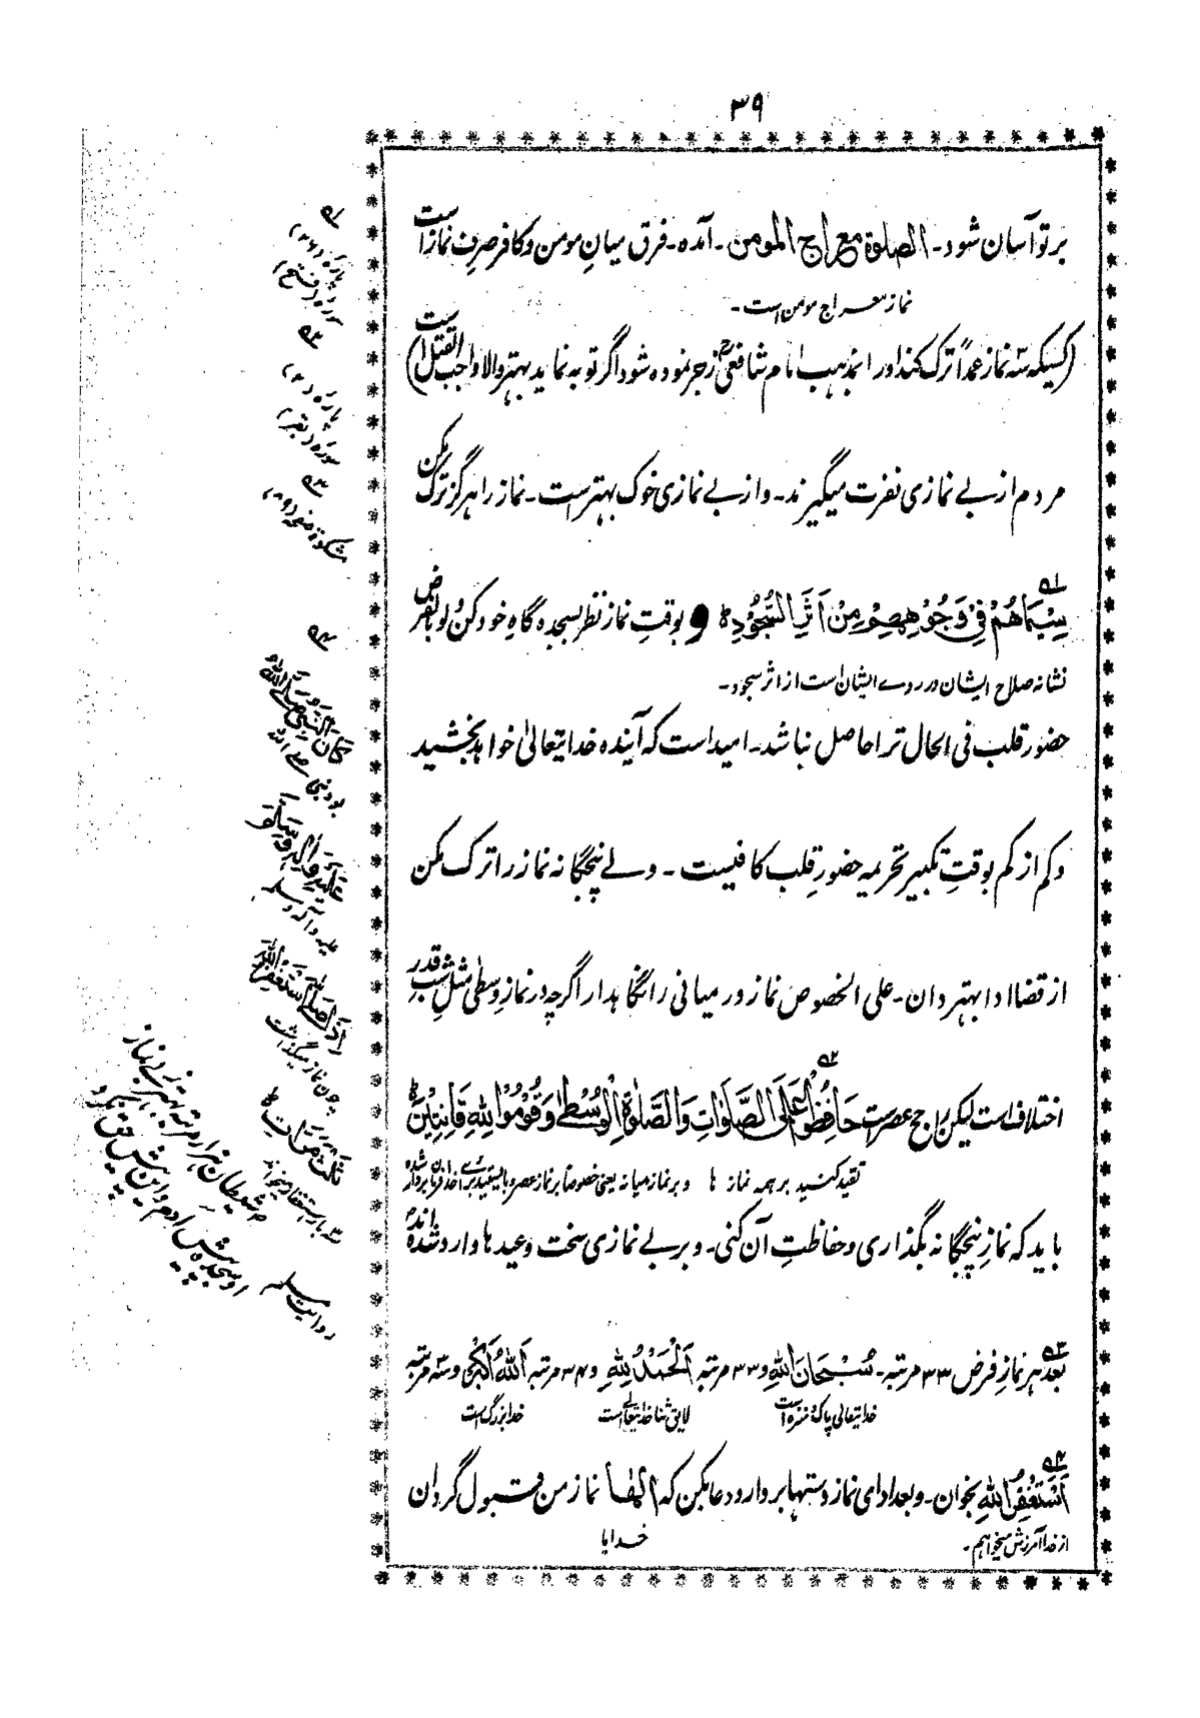 ۳۹
بر تو آسان شود۔ الصلوة معراج المومن۔ آمدہ۔ فرق میانِ مومن و کافر صرفِ نماز است
نماز معراج مومن است۔
(کسیکہ سہ نماز عمداً ترک کند اورا بمذہب امام شافعیؒ زجر نمودہ شود اگر توبہ نماید بہتر والا واجب القتل است)
مردم از بے نمازی نفرت میگیرند۔ و از بے نمازی خوک بہتر است۔ نماز را ہرگز ترک مکن
۵۱
سِيْمَاهُمْ فِيْ وُجُوْهِهِمْ مِنْ اَثَرِ السُّجُوْدِ ط و بوقتِ نماز نظر بسجدہ گاہِ خود کن و لو بالفرض
نشانہ صلاح ایشان در روے ایشان است از اثر سجود۔
حضور قلب فی الحال ترا حاصل نباشد۔ امید است کہ آیندہ خدایتعالیٰ خواہد بخشید
و کم از کم بوقتِ تکبیر تحریمہ حضورِ قلب کافیست۔ ولے پنجگانہ نماز را ترک مکن
از قضا ادا بہتر دان۔ علی الخصوص نماز ورمیانی را نگاہدار اگرچہ در نمازِ وسطیٰ مثلِ شب قدر
۵۲
اختلاف است لیکن راجح عصر است حَافِظُوْا عَلَى الصَّلَوٰاتِ وَالصَّلٰوةِ الْوُسْطٰى وَقُوْمُوْا لِلّٰهِ قَانِتِيْنَ ط
تقید کنید بر ہمہ نماز ہا و بر نماز میانہ یعنی خصوصاً بر نماز عصر و بایستید براے خدا فرمانبردار شدہ
باید کہ نمازِ پنجگانہ بگذاری و حفاظتِ آن کنی۔ و بر بے نمازی سخت وعید ہا وارد شدہ اند
۵۳
بعد ہر نمازِ فرض ۳۳ مرتبہ۔ سُبْحَانَ اللّٰهِ و ۳۳ مرتبہ اَلْحَمْدُ لِلّٰهِ و ۳۴ مرتبہ اَللّٰهُ اَكْبَر و سہ مرتبہ
خدایتعالی پاک و منزہ است لایق ثنا خدایتعالے است خدا بزرگ است
۵۴
اَسْتَغْفِرُ اللّٰهَ بخوان۔ و بعد ادای نماز دستہا بردار و دعا بکن کہ الٰھا نماز من قبول گردان
از خدا آمرزش میخواہم۔ خدایا
۵۱
پارہ (۲۶)
سورہ (فتح)
۵۲
پارہ (۲)
سورہ (بقر)
۵۳
مشکوۃ صفحہ (۸۹)
۵۴
كَانَ النَّبِيُّ صَلَّى اللّٰهُ
بود نبی صلے اللہ
عَلَيْهِ وَاٰلِهٖ وَسَلَّمَ
علیہ وآلہ وسلم
اِذَا صَلّٰى اسْتَغْفَرَ اللّٰهَ
چون نماز میگذاشت
ثَلٰثَ مَرَّاتٍ ط
۳ بار استغفار میخواند
روایت مسلم
شیطان ہزار مرتبہ بہتر ز بے نماز
او سجدہ پیش آدم و این پیش حق نکرد